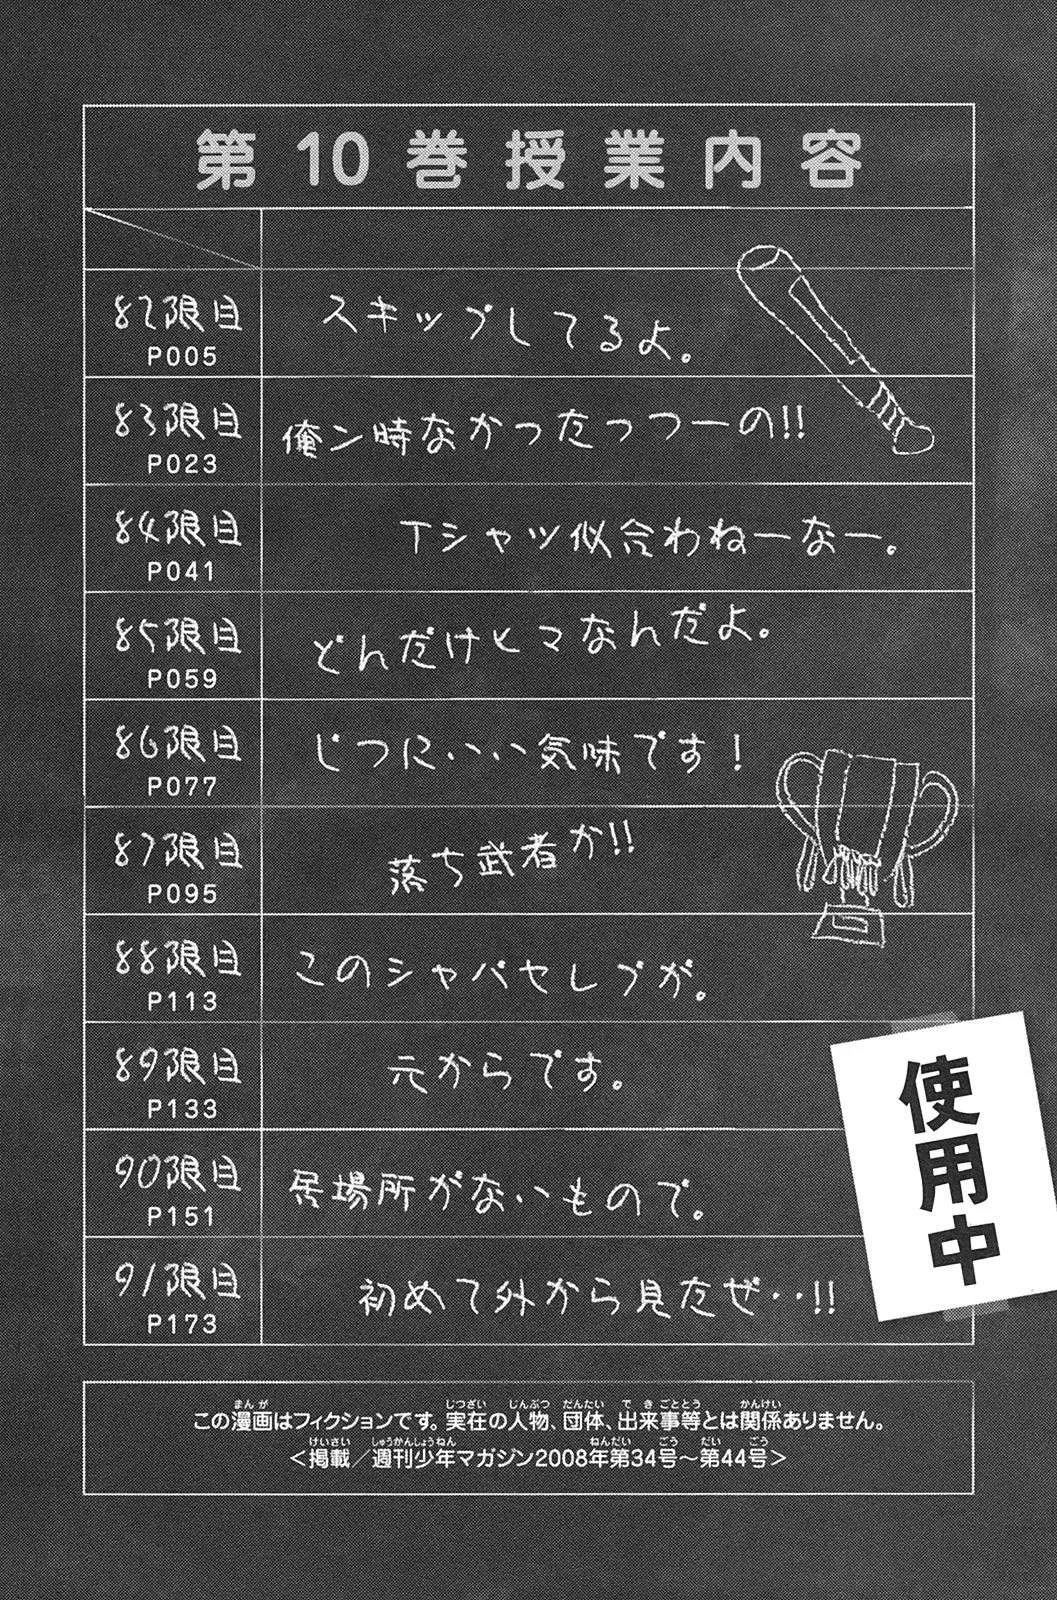 第10巻授業内容
82限目 スキップしてるよ。
P005
83限目 俺ン時なかったっつーの!!
P023
84限目 Tシャツ似合わねーなー。
P041
85限目 どんだけヒマなんだよ。
P059
86限目 じつにいい気味です!
P077
87限目 落ち武者か!!
P095
88限目 このシャバセレブが。
P113
89限目 元からです。
P133
90限目 居場所がないもので。
P151
91限目 初めて外から見たぜ‥!!
P173
使用中
まんが じつざい じんぶつ だんたい できごととう かんけい
この漫画はフィクションです。実在の人物、団体、出来事等とは関係ありません。
けいさい しゅうかんしょうねん ねんだい ごう だい ごう
<掲載/週刊少年マガジン2008年第34号~第44号>